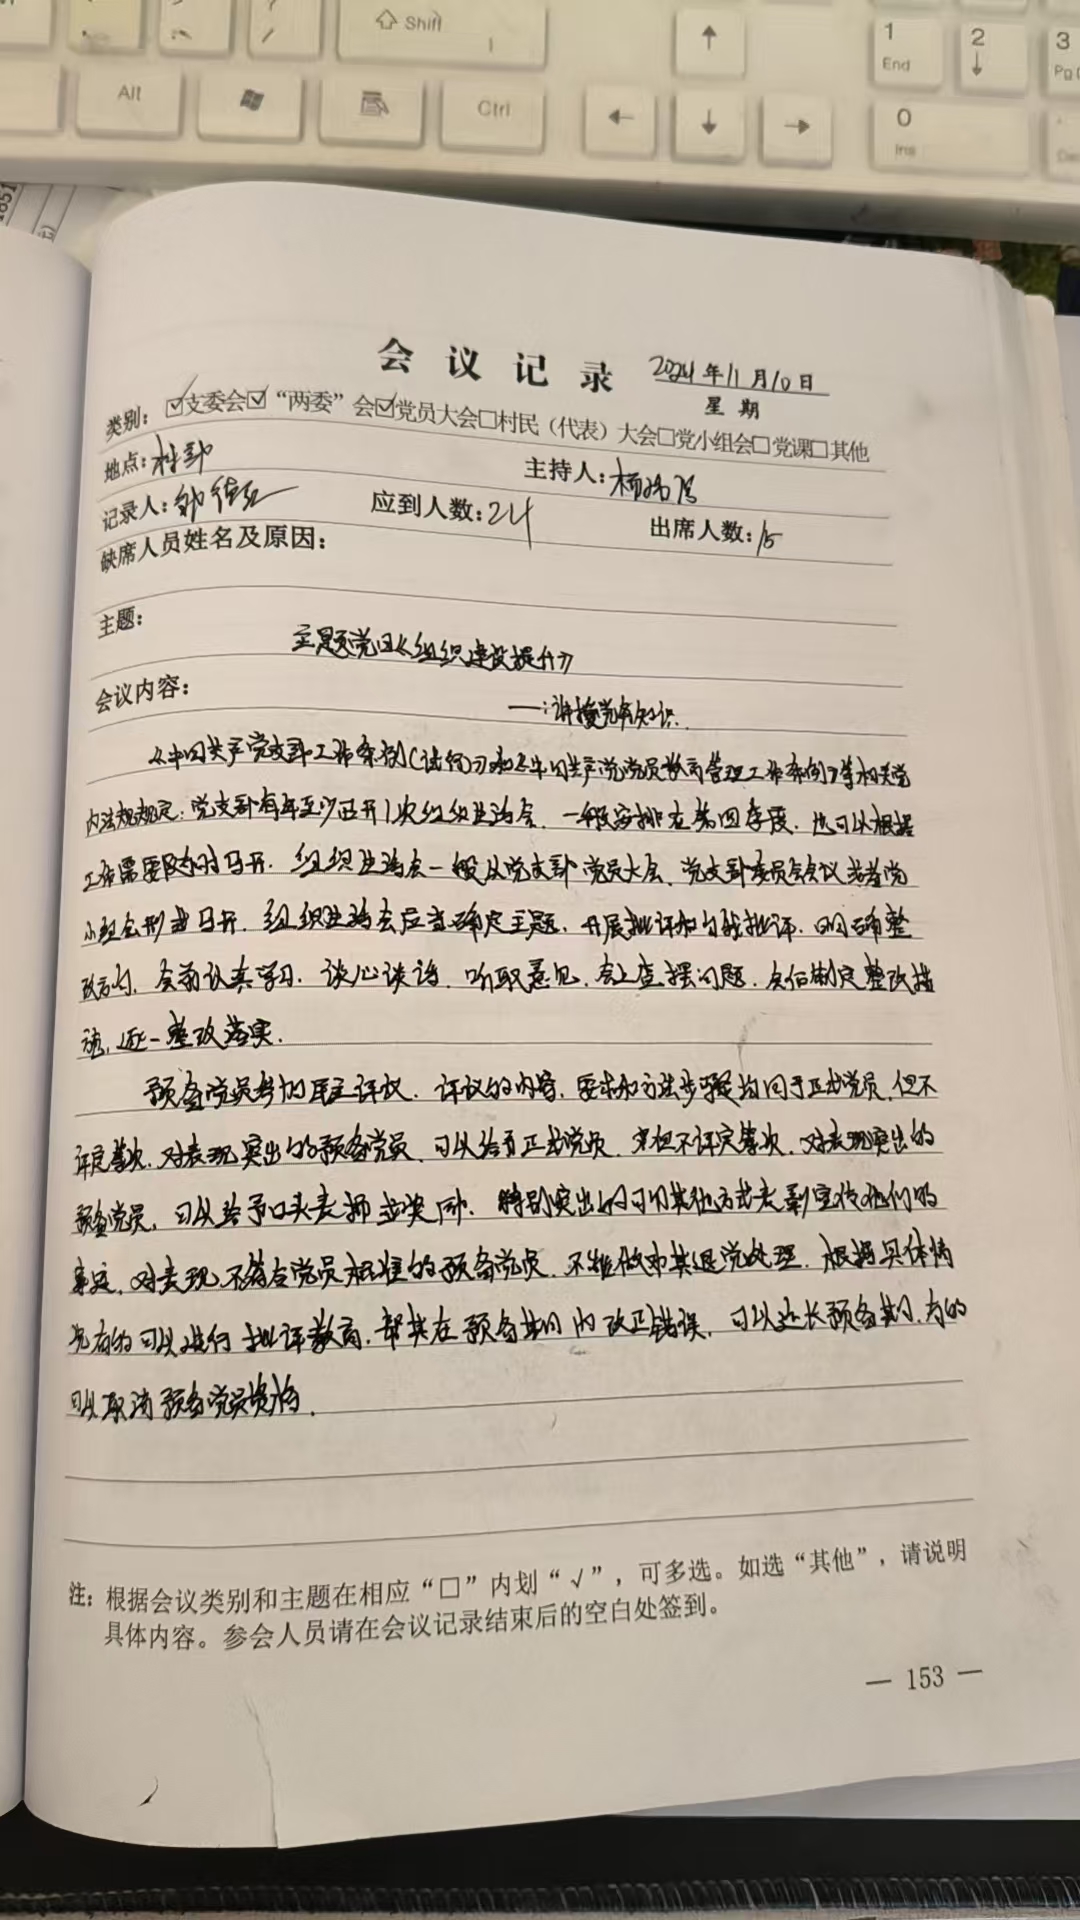 Shift
Alt
Ctrl
1
End
2
3
0
Ins
会议记录 2024年11月10日
星期
类别：☑支委会☑“两委”会☑党员大会□村民（代表）大会□党小组会□党课□其他
地点：村部 主持人：
记录人： 应到人数：24 出席人数：15
缺席人员姓名及原因：
主题：
主题党日《组织建设提升》
会议内容：
——：讲授党务知识
《中国共产党支部工作条例(试行)》和《中国共产党党员教育管理工作条例》等相关党
内法规规定：党支部每年至少召开1次组织生活会，一般安排在第四季度，也可以根据
工作需要随时召开。组织生活会一般以党支部党员大会、党支部委员会会议或者党
小组会形式召开。组织生活会应当确定主题，开展批评和自我批评，明确整
改方向，会前认真学习，谈心谈话，听取意见，会上查摆问题，会后制定整改措
施，逐一整改落实。
预备党员参加民主评议，评议的内容，要求和方法步骤均同于正式党员，但不
评定等次，对表现突出的预备党员，可以给予正式党员，但不评定等次，对表现突出的
预备党员，可以给予口头表扬或奖励，特别突出的可用其他方式表彰宣传他们的
事迹，对表现不符合党员标准的预备党员，不能做劝其退党处理，根据具体情
况有的可以进行批评教育，帮其在预备期内改正错误，可以延长预备期，有的
可以取消预备党员资格。
注：根据会议类别和主题在相应“□”内划“√”，可多选。如选“其他”，请说明
具体内容。参会人员请在会议记录结束后的空白处签到。
— 153 —